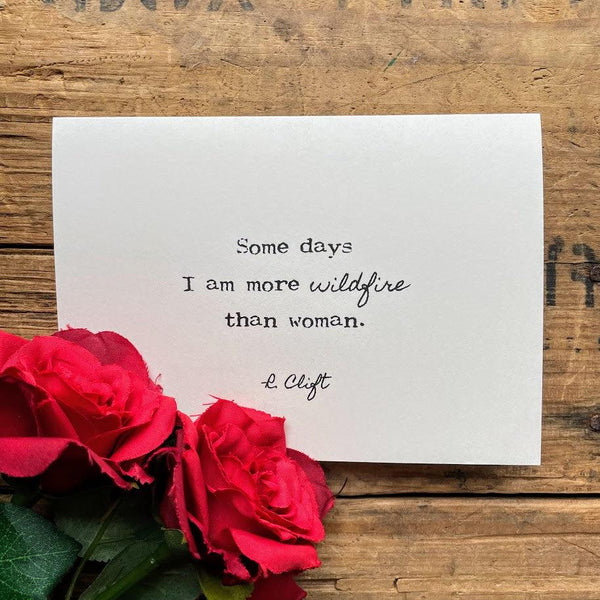 Some days
I am more wildfire
than woman.
R. Clift